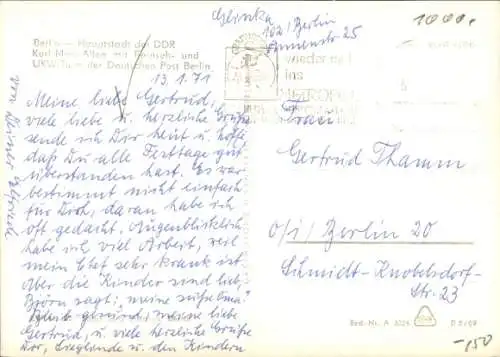 Glinka
102/Berlin
Ammenstr 25
1000,-
Berlin - Hauptstadt der DDR
Karl-Marx-Allee mit Fernseh- und
UKW-Turm der Deutschen Post Berlin
13.1.71
wieder
ins
Meine liebe Gertrud,
viele liebe u. herzliche Grüße
sende ich Dir heut u. hoffe,
daß Du alle Festtage gut
überstanden hast. Es war
bestimmt nicht einfach
für Dich, daran habe ich
oft gedacht. Augenblicklich
habe ich viel Arbeit, weil
mein Chef sehr krank ist.
Aber die Kinder sind lieb,
Björn sagt: „meine süße Oma“
Bleib gesund, meine liebe
Gertrud, u. viele herzliche Grüße
Dir, Sieglinde u. den Kindern
von Deiner
Frau
Gertrud Thamm
Berlin 20
Schmidt-Knobelsdorf-
Str. 23
Best.-Nr. A
-150